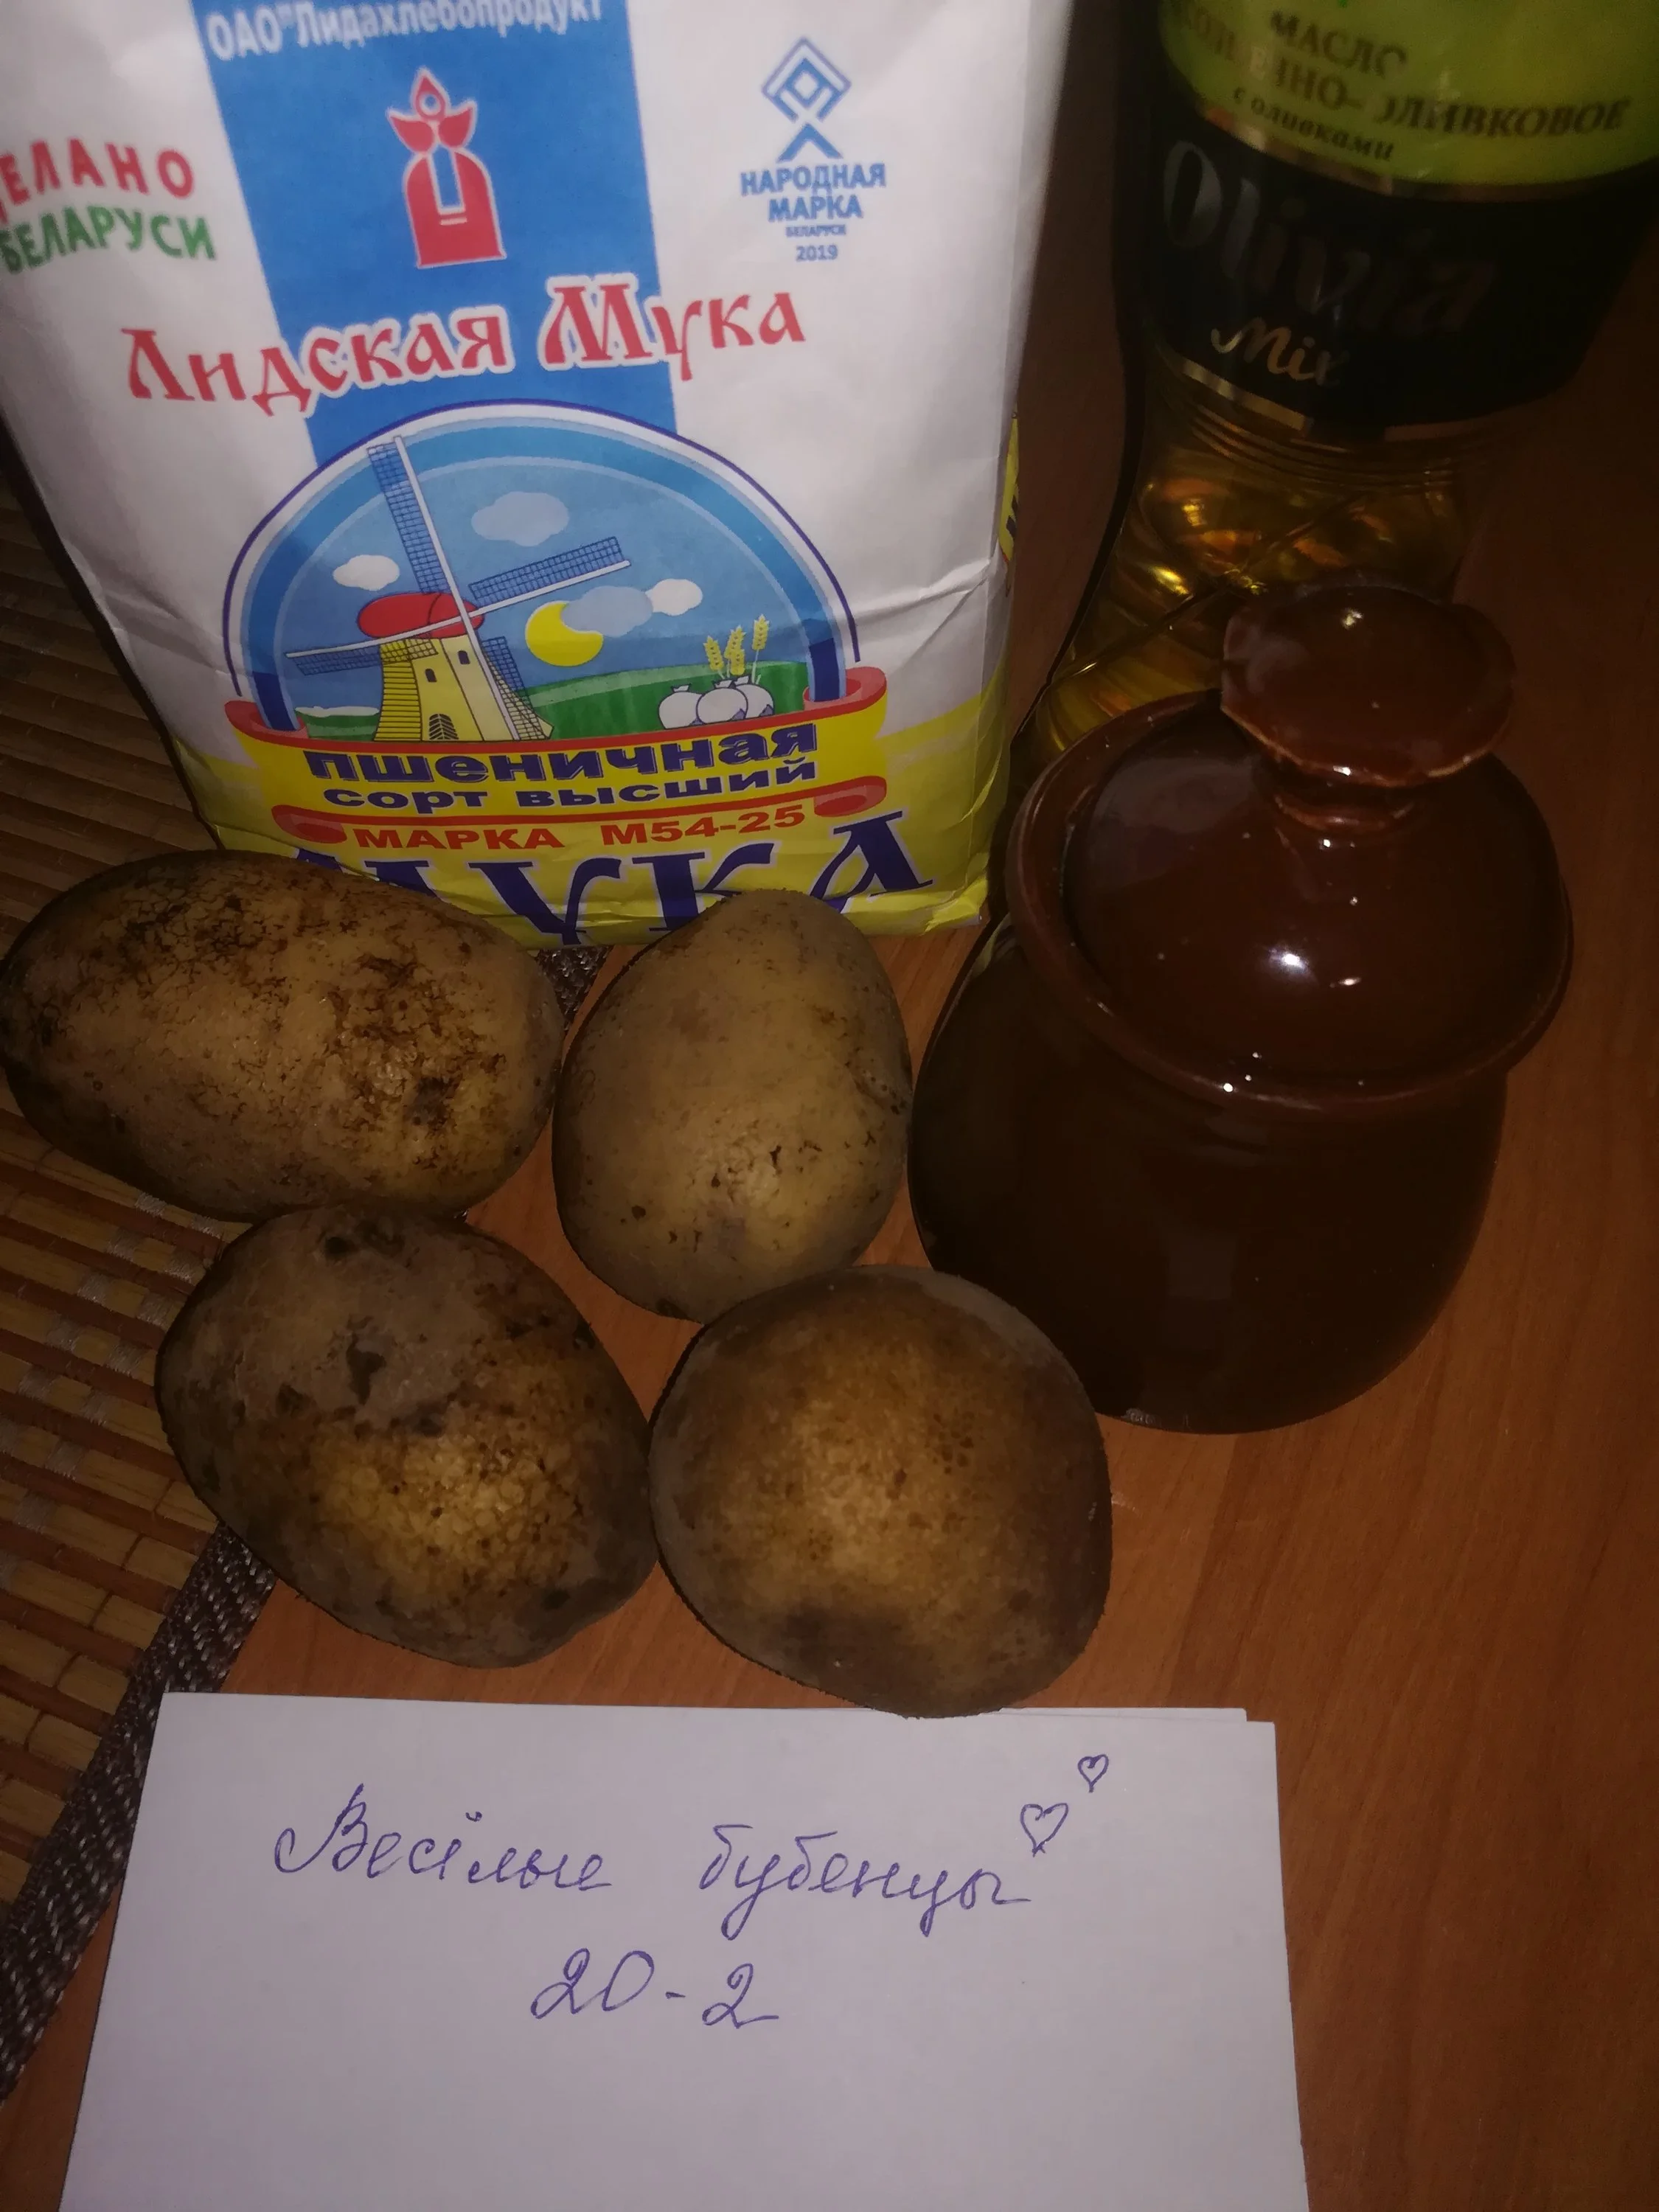 ОАО "Лидахлебопродукт"
ДЕЛАНО
БЕЛАРУСИ
НАРОДНАЯ
МАРКА
БЕЛАРУСИ
2019
Лидская Мука
пшеничная
сорт высший
МАРКА М54-25
МУКА
МАСЛО
ОЛИВКОВОЕ
с оливками
Olivia
Mix
Весёлые бубенцы
20-2